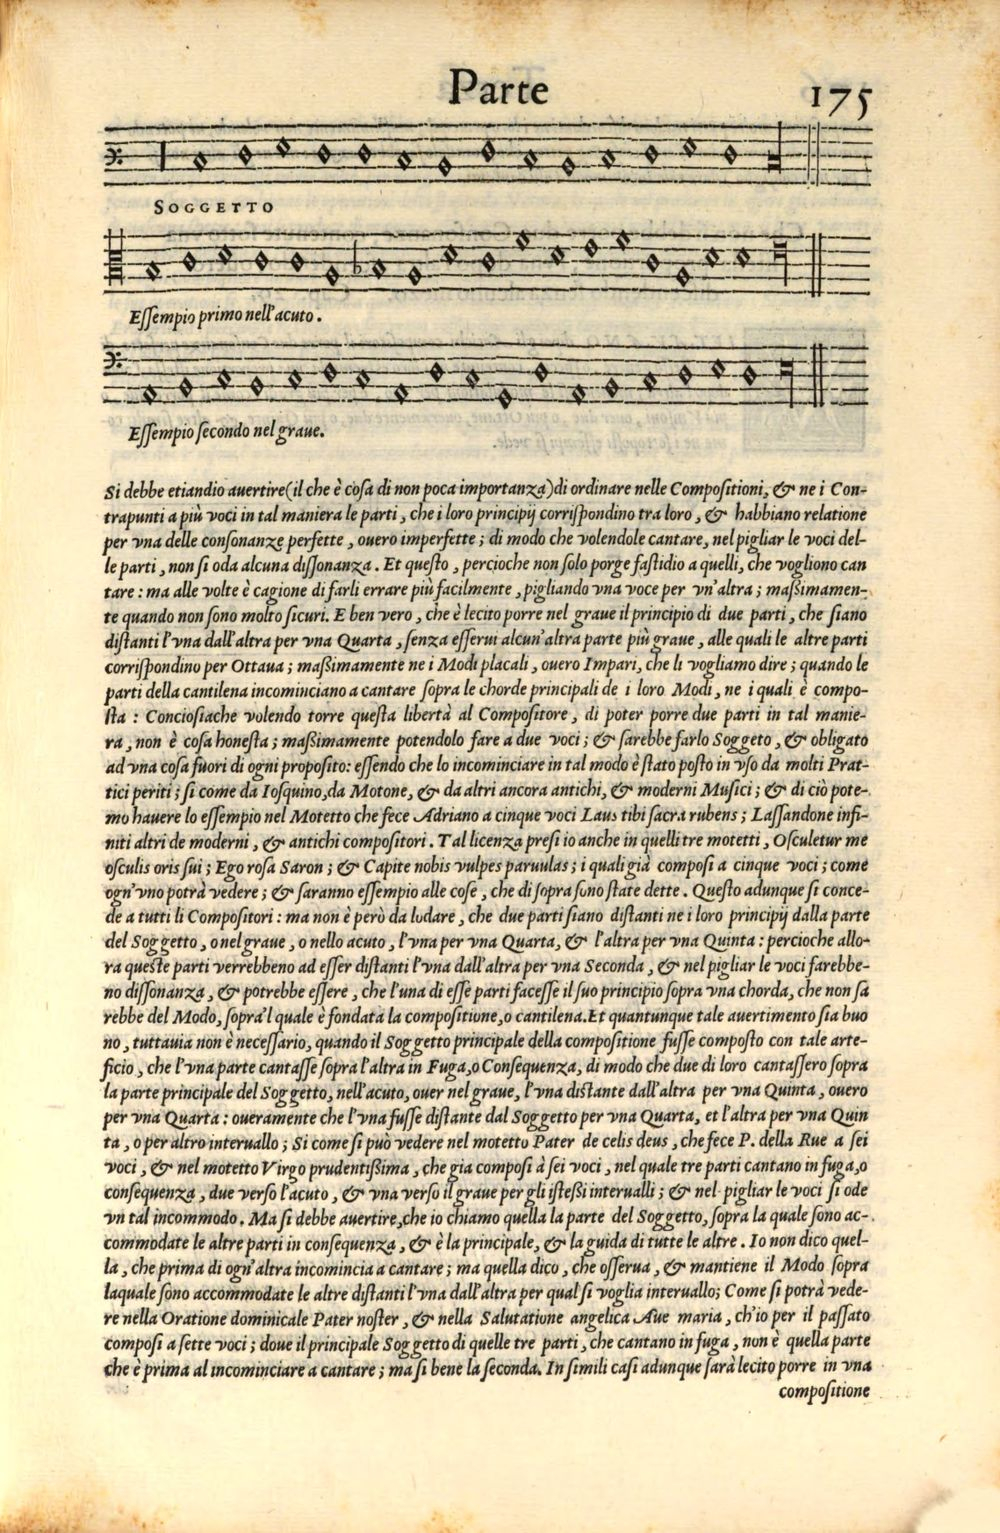 Parte
175
SOGGETTO
Eſſempio primo nell'acuto.
Eſſempio ſecondo nel graue.
Si debbe etiandio auertire(il che è coſa di non poca importanza)di ordinare nelle Compoſitioni, & ne i Con-
trapunti a più voci in tal maniera le parti, che i loro principij corriſpondino tra loro, & habbiano relatione
per vna delle conſonanze perfette, ouero imperfette; di modo che volendole cantare, nel pigliar le voci del-
le parti, non ſi oda alcuna diſſonanza. Et queſto, percioche non ſolo porge faſtidio a quelli, che vogliono can
tare: ma alle volte è cagione di farli errare più facilmente, pigliando vna voce per vn'altra; maßimamen-
te quando non ſono molto ſicuri. E ben vero, che è lecito porre nel graue il principio di due parti, che ſiano
diſtanti l'vna dall'altra per vna Quarta, ſenza eſſerui alcun'altra parte più graue, alle quali le altre parti
corriſpondino per Ottaua; maßimamente ne i Modi placali, ouero Impari, che li vogliamo dire; quando le
parti della cantilena incominciano a cantare ſopra le chorde principali de i loro Modi, ne i quali è compo-
ſta: Concioſiache volendo torre queſta libertà al Compoſitore, di poter porre due parti in tal manie-
ra, non è coſa honeſta; maßimamente potendolo fare a due voci; & ſarebbe farlo Soggeto, & obligato
ad vna coſa fuori di ogni propoſito: eſſendo che lo incominciare in tal modo è ſtato poſto in vſo da molti Prat-
tici periti; ſi come da Ioſquino,da Motone, & da altri ancora antichi, & moderni Muſici; & di ciò pote-
mo hauere lo eſſempio nel Motetto che fece Adriano a cinque voci Laus tibi ſacra rubens; Laſſandone infi-
niti altri de moderni, & antichi compoſitori. Tal licenza preſi io anche in quelli tre motetti, Oſculetur me
oſculis oris ſui; Ego roſa Saron; & Capite nobis vulpes paruulas; i quali già compoſi a cinque voci; come
ogn'vno potrà vedere; & ſaranno eſſempio alle coſe, che di ſopra ſono ſtate dette. Queſto adunque ſi conce-
de a tutti li Compoſitori: ma non è però da lodare, che due parti ſiano diſtanti ne i loro principij dalla parte
del Soggetto, o nel graue, o nello acuto, l'vna per vna Quarta, & l'altra per vna Quinta: percioche allo-
ra queſte parti verrebbeno ad eſſer diſtanti l'vna dall'altra per vna Seconda, & nel pigliar le voci farebbe-
no diſſonanza, & potrebbe eſſere, che l'una di eſſe parti faceſſe il ſuo principio ſopra vna chorda, che non ſa
rebbe del Modo, ſopra'l quale è fondata la compoſitione,o cantilena.Et quantunque tale auertimento ſia buo
no, tuttauia non è neceſſario, quando il Soggetto principale della compoſitione fuſſe compoſto con tale arte-
ficio, che l'vna parte cantaſſe ſopra l'altra in Fuga,o Conſequenza, di modo che due di loro cantaſſero ſopra
la parte principale del Soggetto, nell'acuto, ouer nel graue, l'vna diſtante dall'altra per vna Quinta, ouero
per vna Quarta: oueramente che l'vna fuſſe diſtante dal Soggetto per vna Quarta, et l'altra per vna Quin
ta, o per altro interuallo; Si come ſi può vedere nel motetto Pater de celis deus, che fece P. della Rue a ſei
voci, & nel motetto Virgo prudentißima, che gia compoſi à ſei voci, nel quale tre parti cantano in fuga,o
conſequenza, due verſo l'acuto, & vna verſo il graue per gli iſteßi interualli; & nel pigliar le voci ſi ode
vn tal incommodo. Ma ſi debbe auertire,che io chiamo quella la parte del Soggetto, ſopra la quale ſono ac-
commodate le altre parti in conſequenza, & è la principale, & la guida di tutte le altre. Io non dico quel-
la, che prima di ogn'altra incomincia a cantare; ma quella dico, che oſſerua, & mantiene il Modo ſopra
laquale ſono accommodate le altre diſtanti l'vna dall'altra per qual ſi voglia interuallo; Come ſi potrà vede-
re nella Oratione dominicale Pater noſter, & nella Salutatione angelica Aue maria, ch'io per il paſſato
compoſi a ſette voci; doue il principale Soggetto di quelle tre parti, che cantano in fuga, non è quella parte
che è prima al incominciare a cantare; ma ſi bene la ſeconda. In ſimili caſi adunque ſarà lecito porre in vna
compoſitione